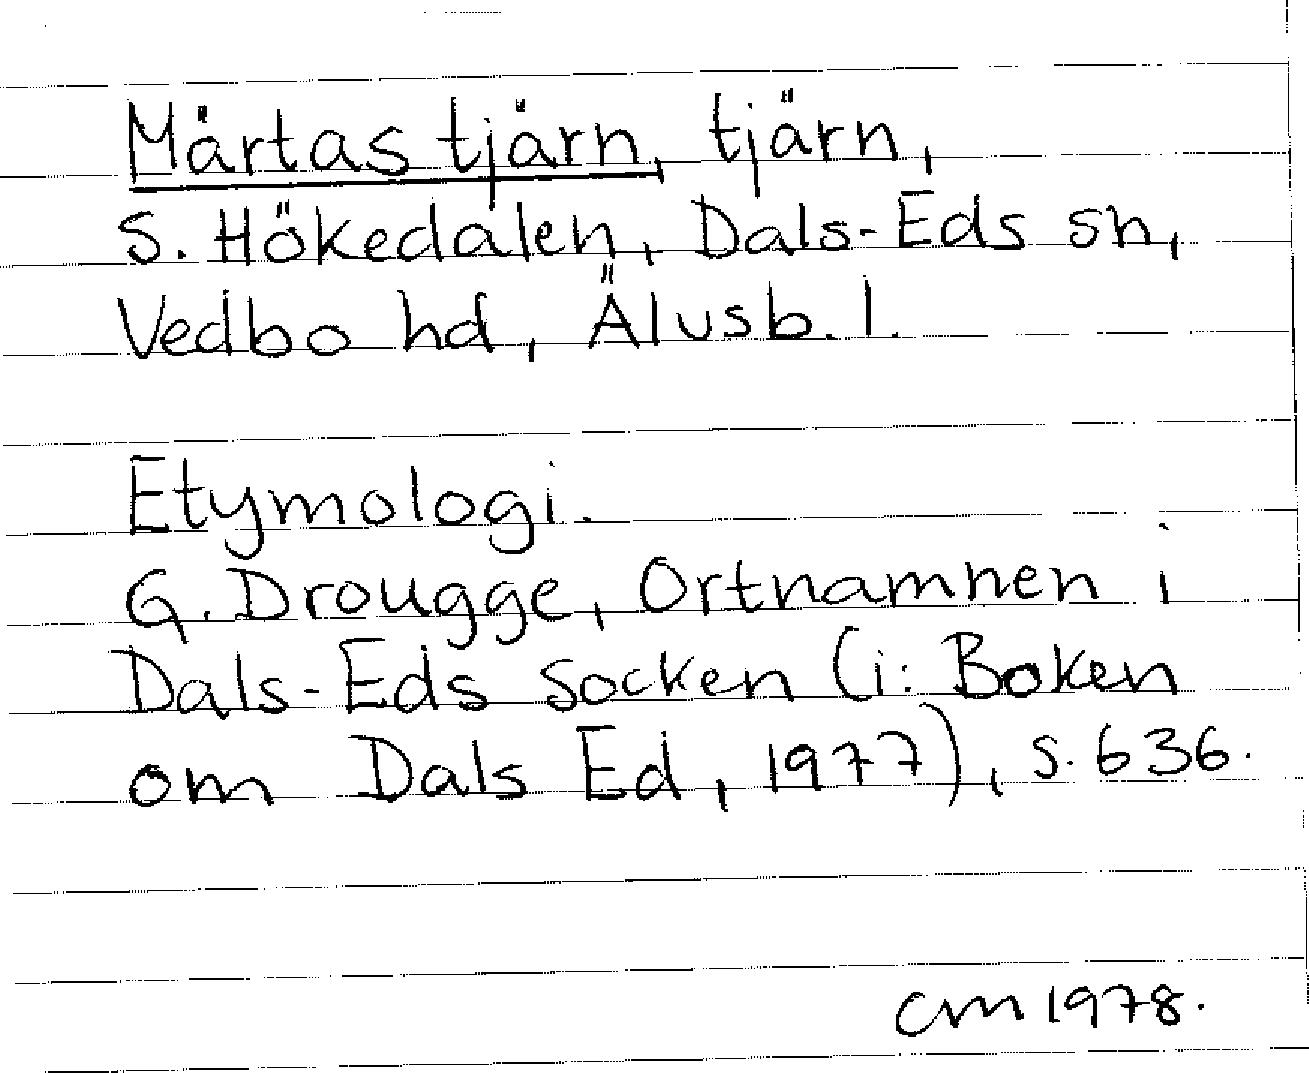 Märtas tjärn, tjärn,
S. Hökedalen, Dals-Eds sn,
Vedbo hd, Älvsb. l.
Etymologi.
G. Drougge, Ortnamnen i
Dals-Eds socken (i: Boken
om Dals Ed, 1977), s. 636.
CM 1978.